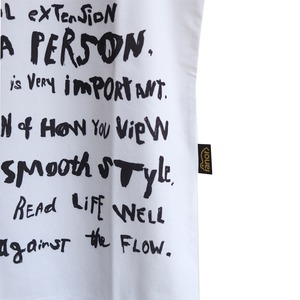 L EXTENSION
A PERSON.
is VERY iMPORTANT.
N & HOW YOU ViEW
SMOOTH STYLE.
READ LiFE WELL
against the FLOW.